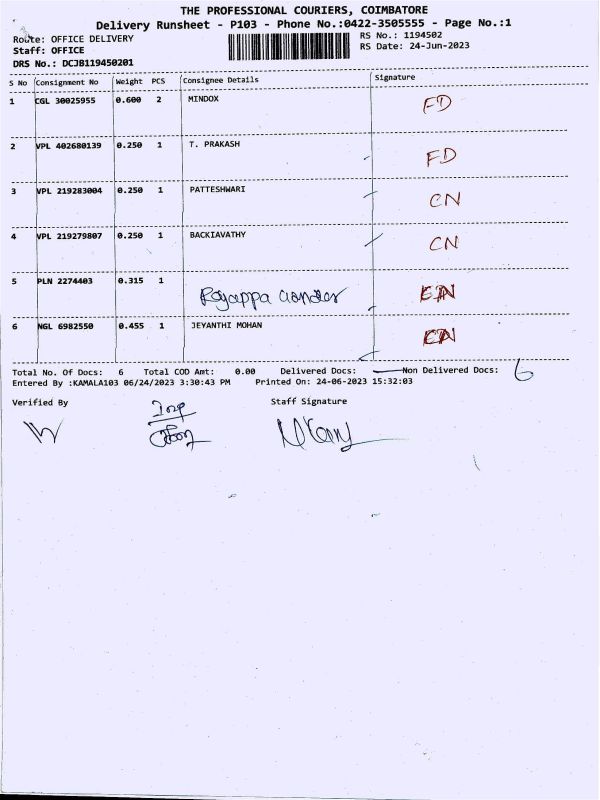 THE PROFESSIONAL COURIERS, COIMBATORE
Delivery Runsheet - P103 - Phone No.:0422-3505555 - Page No.:1
Route: OFFICE DELIVERY
RS No.: 1194502
Staff: OFFICE
RS Date: 24-Jun-2023
DRS No.: DCJB119450201
S No Consignment No Weight PCS Consignee Details Signature
1 CGL 30025955 0.600 2 MINDOX FD
2 VPL 402680139 0.250 1 T. PRAKASH FD
3 VPL 219283004 0.250 1 PATTESHWARI CN
4 VPL 219279807 0.250 1 BACKIAVATHY CN
5 PLN 2274403 0.315 1 Rajappa
6 NGL 6982550 0.455 1 JEYANTHI MOHAN
Total No. Of Docs: 6 Total COD Amt: 0.00 Delivered Docs: Non Delivered Docs: 6
Entered By :KAMALA103 06/24/2023 3:30:43 PM Printed On: 24-06-2023 15:32:03
Verified By Staff Signature